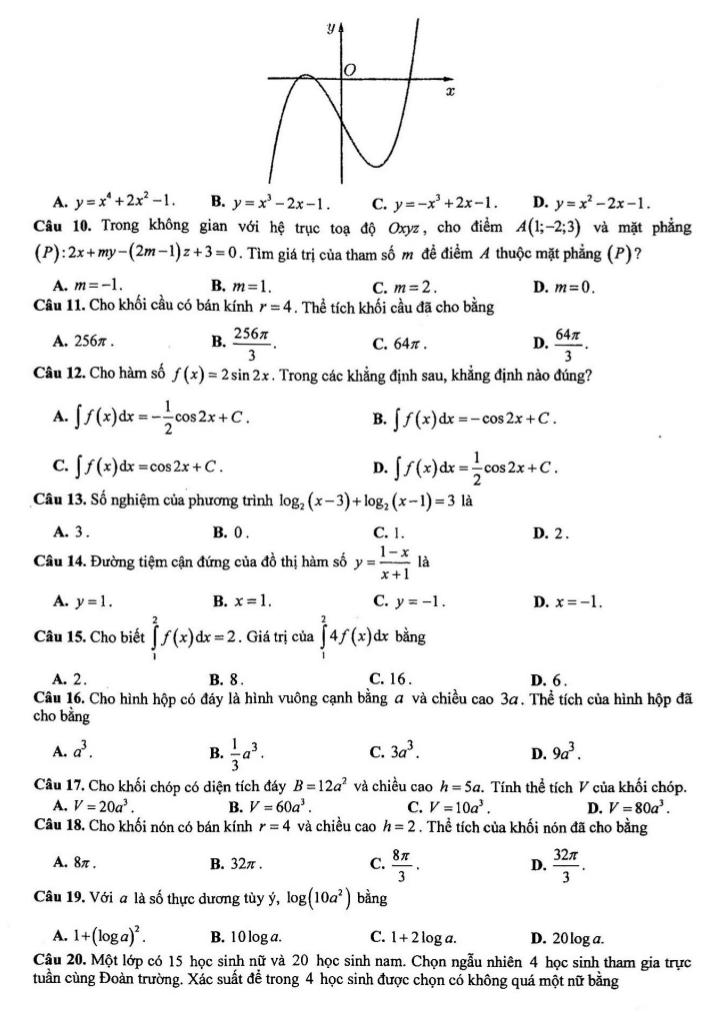 y
O
x
A. y = x⁴ + 2x² − 1. B. y = x³ − 2x − 1. C. y = −x³ + 2x − 1. D. y = x² − 2x − 1.
Câu 10. Trong không gian với hệ trục toạ độ Oxyz, cho điểm A(1;−2;3) và mặt phẳng
(P): 2x + my − (2m − 1)z + 3 = 0. Tìm giá trị của tham số m để điểm A thuộc mặt phẳng (P)?
A. m = −1. B. m = 1. C. m = 2. D. m = 0.
Câu 11. Cho khối cầu có bán kính r = 4. Thể tích khối cầu đã cho bằng
A. 256π. B. 256π/3. C. 64π. D. 64π/3.
Câu 12. Cho hàm số f(x) = 2sin2x. Trong các khẳng định sau, khẳng định nào đúng?
A. ∫f(x)dx = −1/2 cos2x + C. B. ∫f(x)dx = −cos2x + C.
C. ∫f(x)dx = cos2x + C. D. ∫f(x)dx = 1/2 cos2x + C.
Câu 13. Số nghiệm của phương trình log₂(x − 3) + log₂(x − 1) = 3 là
A. 3. B. 0. C. 1. D. 2.
Câu 14. Đường tiệm cận đứng của đồ thị hàm số y = (1 − x)/(x + 1) là
A. y = 1. B. x = 1. C. y = −1. D. x = −1.
Câu 15. Cho biết ∫₁² f(x)dx = 2. Giá trị của ∫₁² 4f(x)dx bằng
A. 2. B. 8. C. 16. D. 6.
Câu 16. Cho hình hộp có đáy là hình vuông cạnh bằng a và chiều cao 3a. Thể tích của hình hộp đã
cho bằng
A. a³. B. 1/3 a³. C. 3a³. D. 9a³.
Câu 17. Cho khối chóp có diện tích đáy B = 12a² và chiều cao h = 5a. Tính thể tích V của khối chóp.
A. V = 20a³. B. V = 60a³. C. V = 10a³. D. V = 80a³.
Câu 18. Cho khối nón có bán kính r = 4 và chiều cao h = 2. Thể tích của khối nón đã cho bằng
A. 8π. B. 32π. C. 8π/3. D. 32π/3.
Câu 19. Với a là số thực dương tùy ý, log(10a²) bằng
A. 1 + (log a)². B. 10 log a. C. 1 + 2 log a. D. 20 log a.
Câu 20. Một lớp có 15 học sinh nữ và 20 học sinh nam. Chọn ngẫu nhiên 4 học sinh tham gia trực
tuần cùng Đoàn trường. Xác suất để trong 4 học sinh được chọn có không quá một nữ bằng